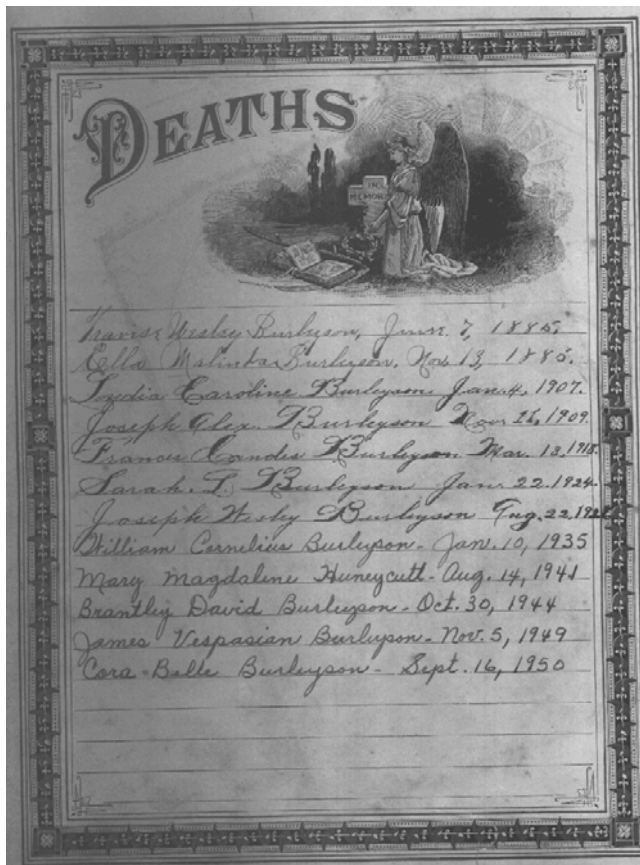 DEATHS
IN
MEMOR
Travise Wesley Burleyson, June. 7, 1885.
Ella Malinda Burleyson. Nov. 13, 1885.
Lydia Caroline Burleyson Jan. 4, 1907.
Joseph Alex. Burleyson Nov. 1909.
Frances Candis Burleyson Mar. 13, 1918.
Sarah. L. Burleyson Jan. 22. 1924.
Joseph Wesley Burleyson Aug. 22,
William Cornelius Burleyson - Jan. 10, 1935
Mary Magdalene Huneycutt - Aug. 14, 1941
Brantley David Burleyson - Oct. 30, 1944
James Vespasian Burleyson - Nov. 5, 1949
Cora Belle Burleyson - Sept. 16, 1950